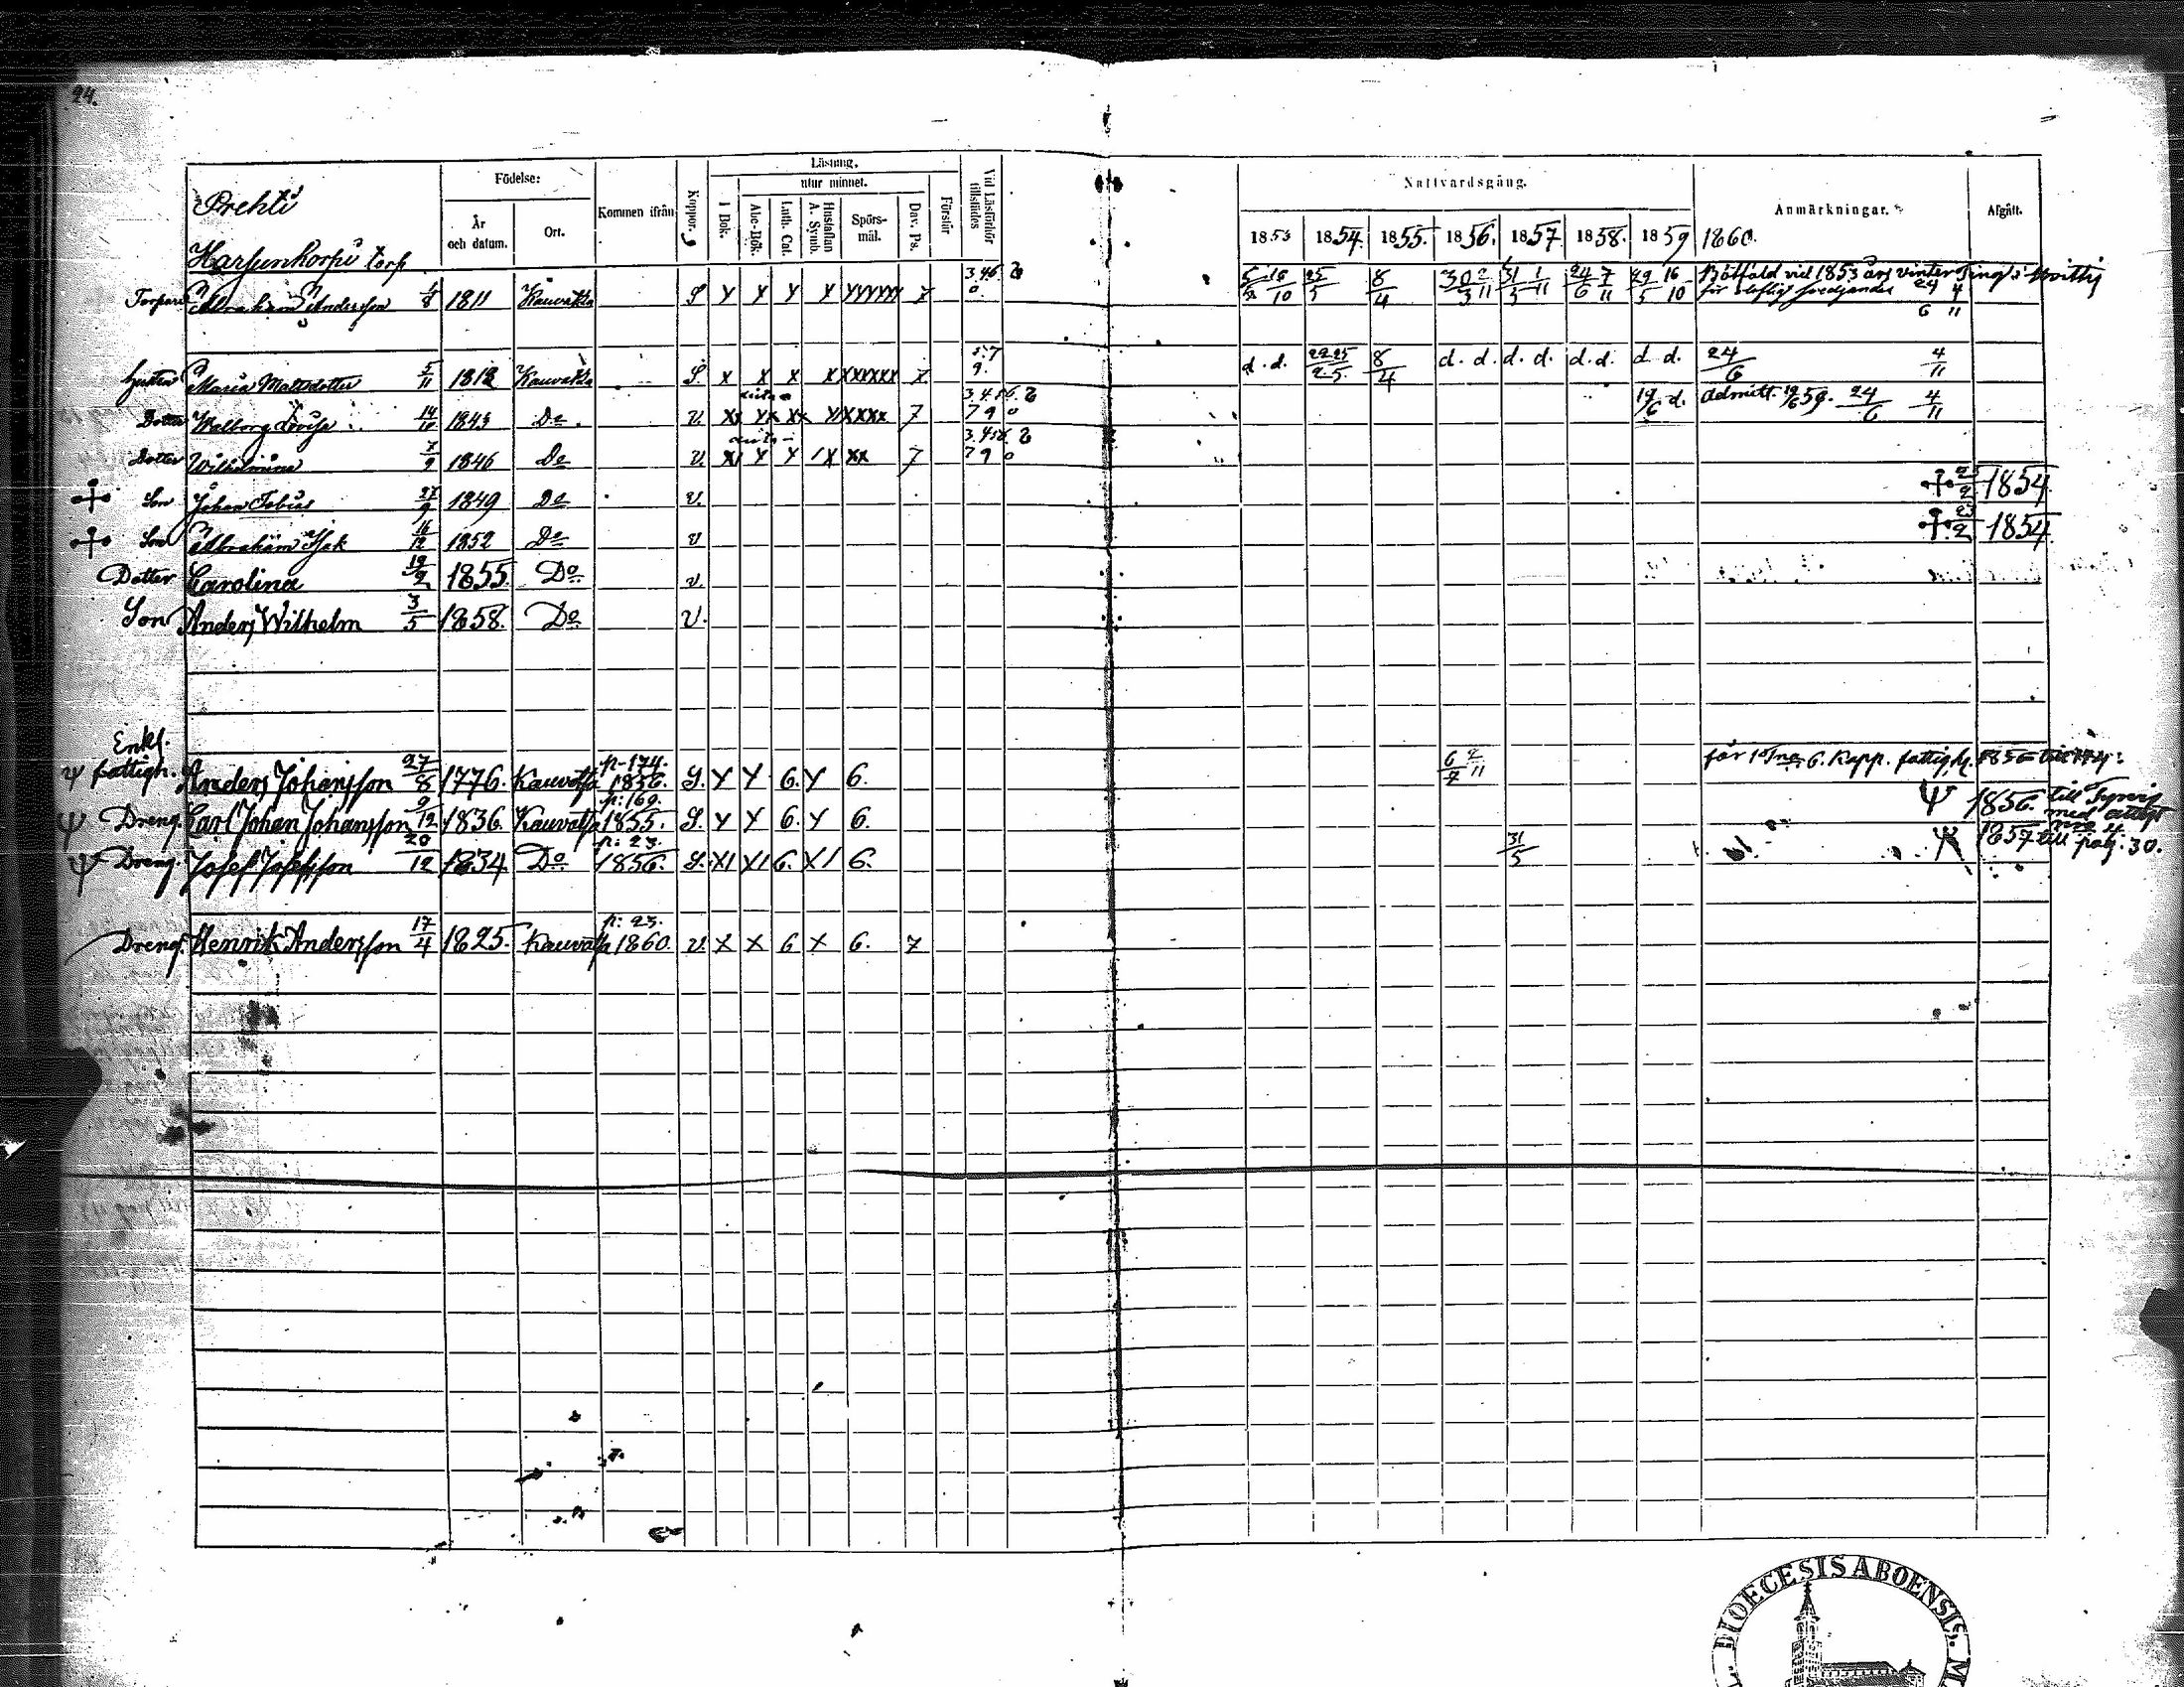 24.
Prehti
Harjunkorpi torp
Födelse:
År och datum.
Ort.
Kommen ifrån
Koppor.
Läsning.
I Bok.
utur minnet.
Abc-Bok.
Luth. Cat.
Hustaflan A. Symb.
Spörs-mål.
Dav. Ps.
Förstår
Vid Läsförhör tillstädes
Nattvardsgång.
1853 1854. 1855. 1856. 1857 1858. 1859 1860.
Anmärkningar.
Afgått.
Torpare Abraham Andersson 1/8 1811 Kauvatsa S Y Y Y Y YYYYYY 7 3.46. 5/2 16/10 25/5 8/4 30/3 2/11 31/5 1/11 24/6 7/11 29/5 16/10 Bötfäld vid 1853 års vinter Ting i Hvittis
för olofligt svedjande 24/6 4/11
Hustru Maria Mattsdotter 5/11 1812 Kauvatsa S. x x x x xxxxxx 7. d. d. 22 25/2 5. 8/4 d. d. d. d. d. d. d. d. 24/6 4/11
Dotter Walborg Lovisa 14/10 1843 Do. V. 7 3.456. 7 9 0 19/6 d. Admitt. 19/6 59. 24/6 4/11
Dotter Wilhelmina 7/9 1846 Do V. X Y Y /X XX 7 3.456. 7 9 0
Son Johan Tobias 27/9 1849 Do V. 1854.
Son Abraham Isak 16/12 1852 Do V 1854.
Dotter Carolina 19/2 1855. Do V.
Son Anders Wilhelm 3/5 1858. Do V.
Enkl.
fattigh. Anders Johansson 27/8 1776. Kauvatsa p. 174. 1856. S. Y Y 6. Y 6. 6/7 2/11 får 1 Tna 6. Kapp. fattigh.
Ψ Dreng. Carl Johan Johansson 9/12 1836. Kauvatsa p: 169. 1855. S. Y Y 6. Y 6. Ψ 1856. till
med attest
Ψ Dreng. Josef Josefsson 20/12 1834. Do p: 23. 1856. S. XI XI 6. XI 6. 31/5 Ψ 1857 till pag. 30.
Dreng. Henrik Andersson 17/4 1825. Kauvatsa p: 23. 1860. V. X X 6 X 6. 7
DIOECESIS ABOENSIS.